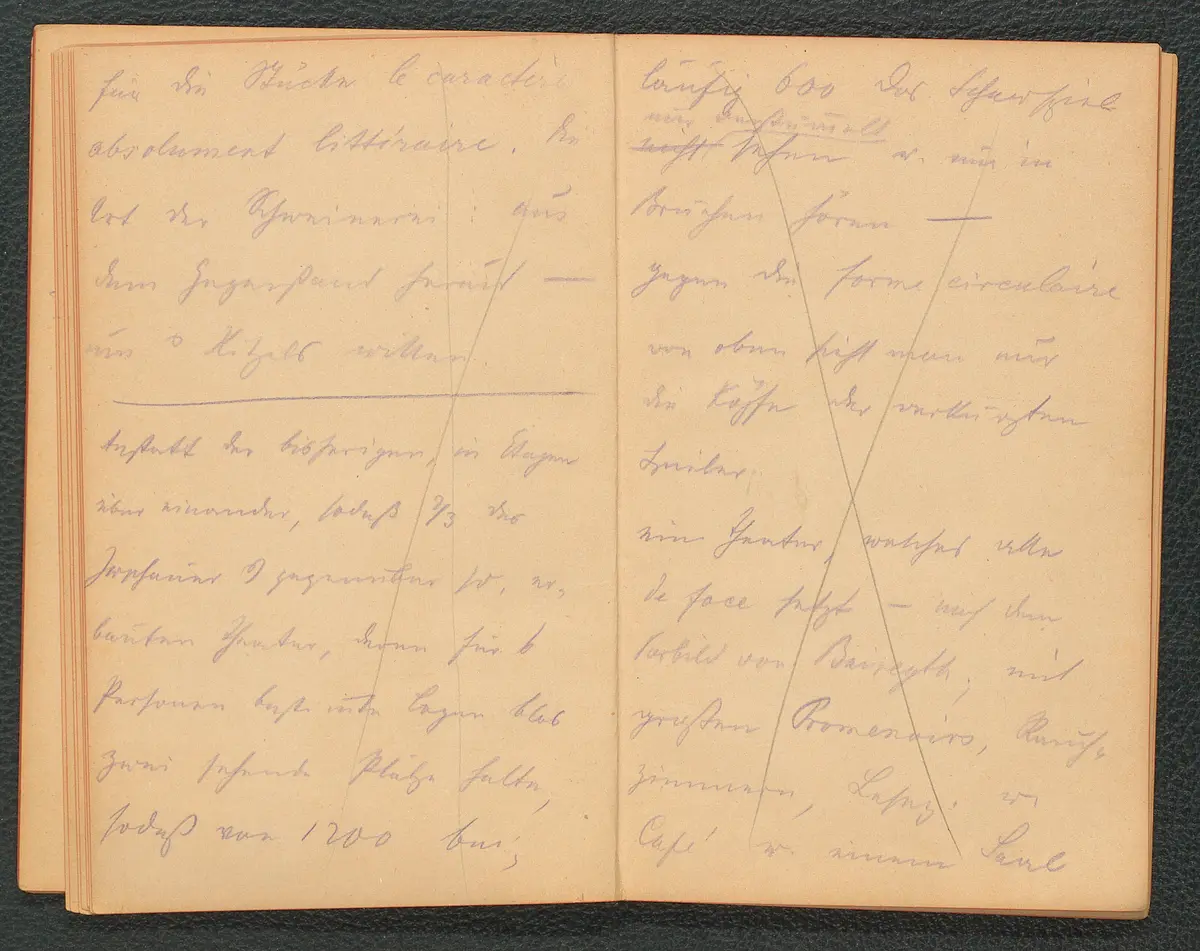 für die Stücke le caractère
absolument littéraire. Die
Art der Schweinerei: aus
dem Gegenstand heraus —
um d Kitzels willen.
Anstatt der bisherigen, in Etagen
über einander, sodaß 2/3 des
Zuschauer gegenüber so, er-
bauten Theater, deren für 6
Personen best. Logen blos
zwei sehende Plätze halte,
sodaß von 1200 bei-
läufig 600 das Schauspiel
nur verstümmelt
nicht sehen u. nur in
Brüchen hören —
gegen die forme circulaire
von oben sieht man nur
die Köpfe der verkürzten
Spieler.
ein Theater, welches alle
de face setzt — nach dem
Vorbild von Baireuth, mit
großen Promenoirs, Rauch-
zimmern, Lesez. u.
Café u. einem Saal